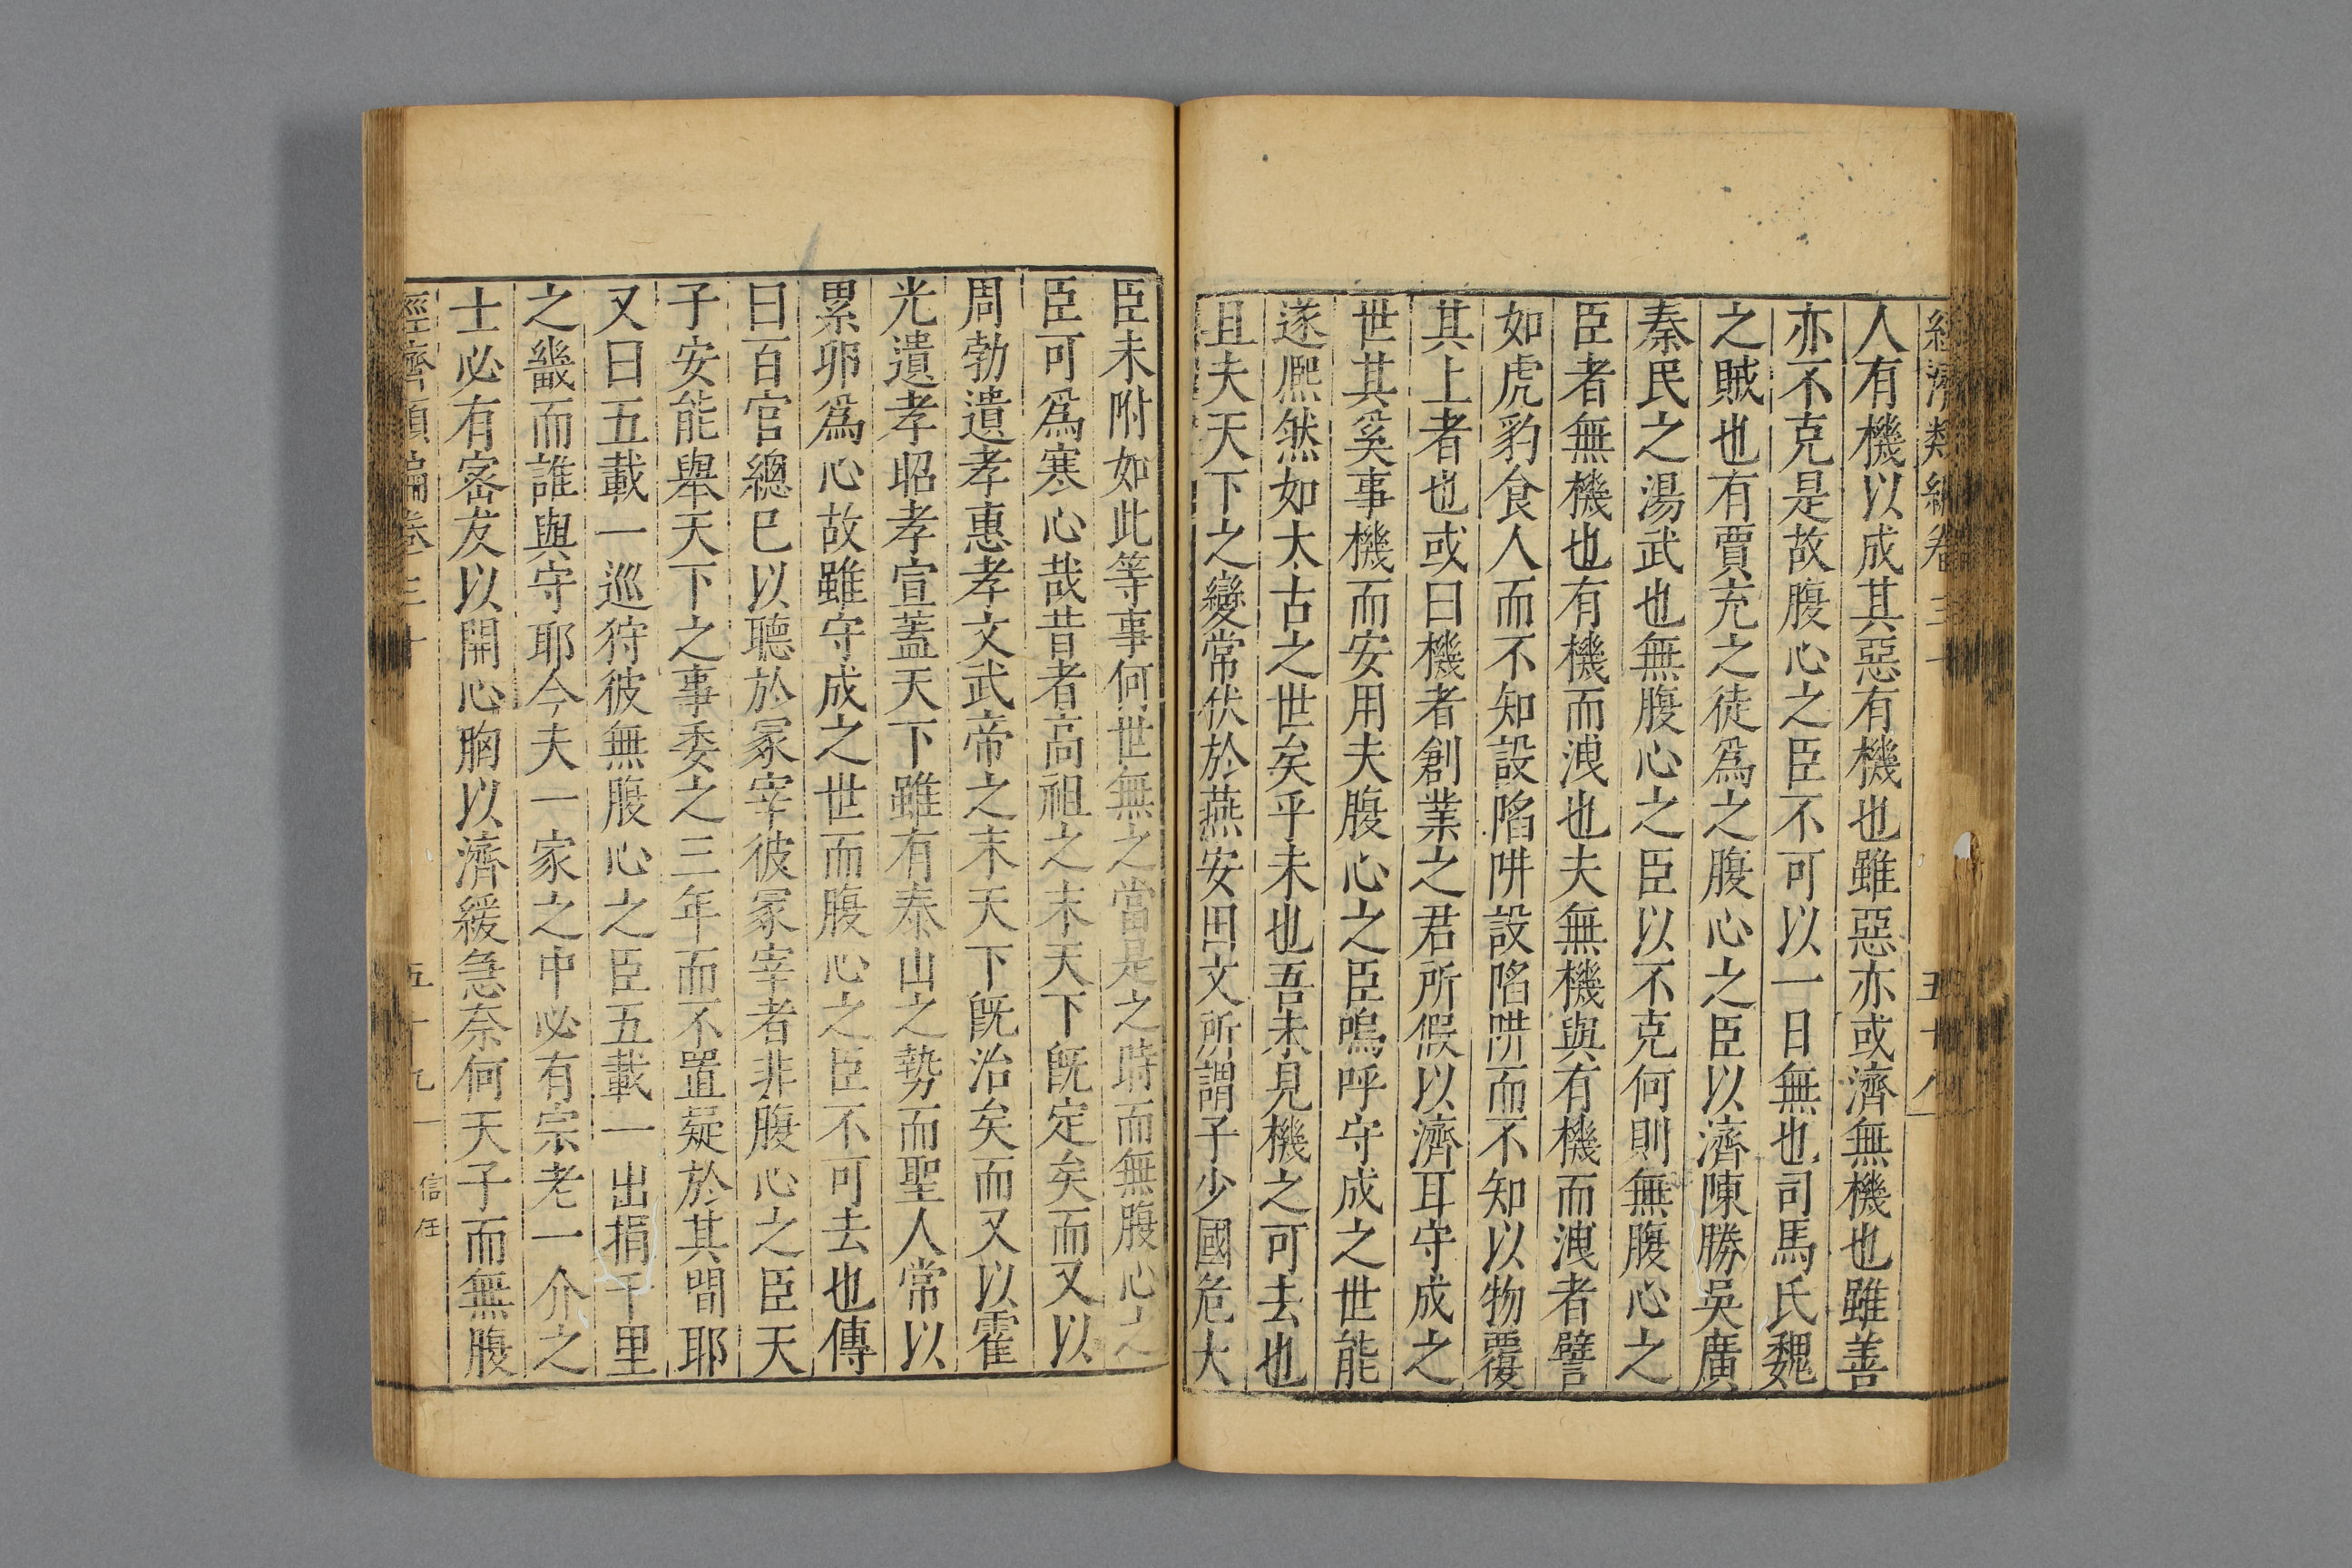 經濟類編卷三十 五十八
人有機以成其惡有機也雖惡亦或濟無機也雖善
亦不克是故腹心之臣不可以一日無也司馬氏魏
之賊也有賈充之徒爲之腹心之臣以濟陳勝吳廣
秦民之湯武也無腹心之臣以不克何則無腹心之
臣者無機也有機而洩也夫無機與有機而洩者譬
如虎豹食人而不知設陷阱設陷阱而不知以物覆
其上者也或曰機者創業之君所假以濟耳守成之
世其奚事機而安用夫腹心之臣嗚呼守成之世能
遂熈然如太古之世矣乎未也吾未見機之可去也
且夫天下之變常伏於燕安田文所謂子少國危大
臣未附如此等事何世無之當是之時而無腹心之
臣可爲寒心哉昔者高祖之末天下旣定矣而又以
周勃遺孝惠孝文武帝之末天下旣治矣而又以霍
光遺孝昭孝宣蓋天下雖有泰山之勢而聖人常以
累卵爲心故雖守成之世而腹心之臣不可去也傳
曰百官總已以聽於冢宰彼冢宰者非腹心之臣天
子安能舉天下之事委之三年而不置疑於其間耶
又曰五載一巡狩彼無腹心之臣五載一出捐千里
之畿而誰與守耶今夫一家之中必有宗老一介之
士必有密友以開心胸以濟緩急奈何天子而無腹
經濟類編卷三十 五十九 信任